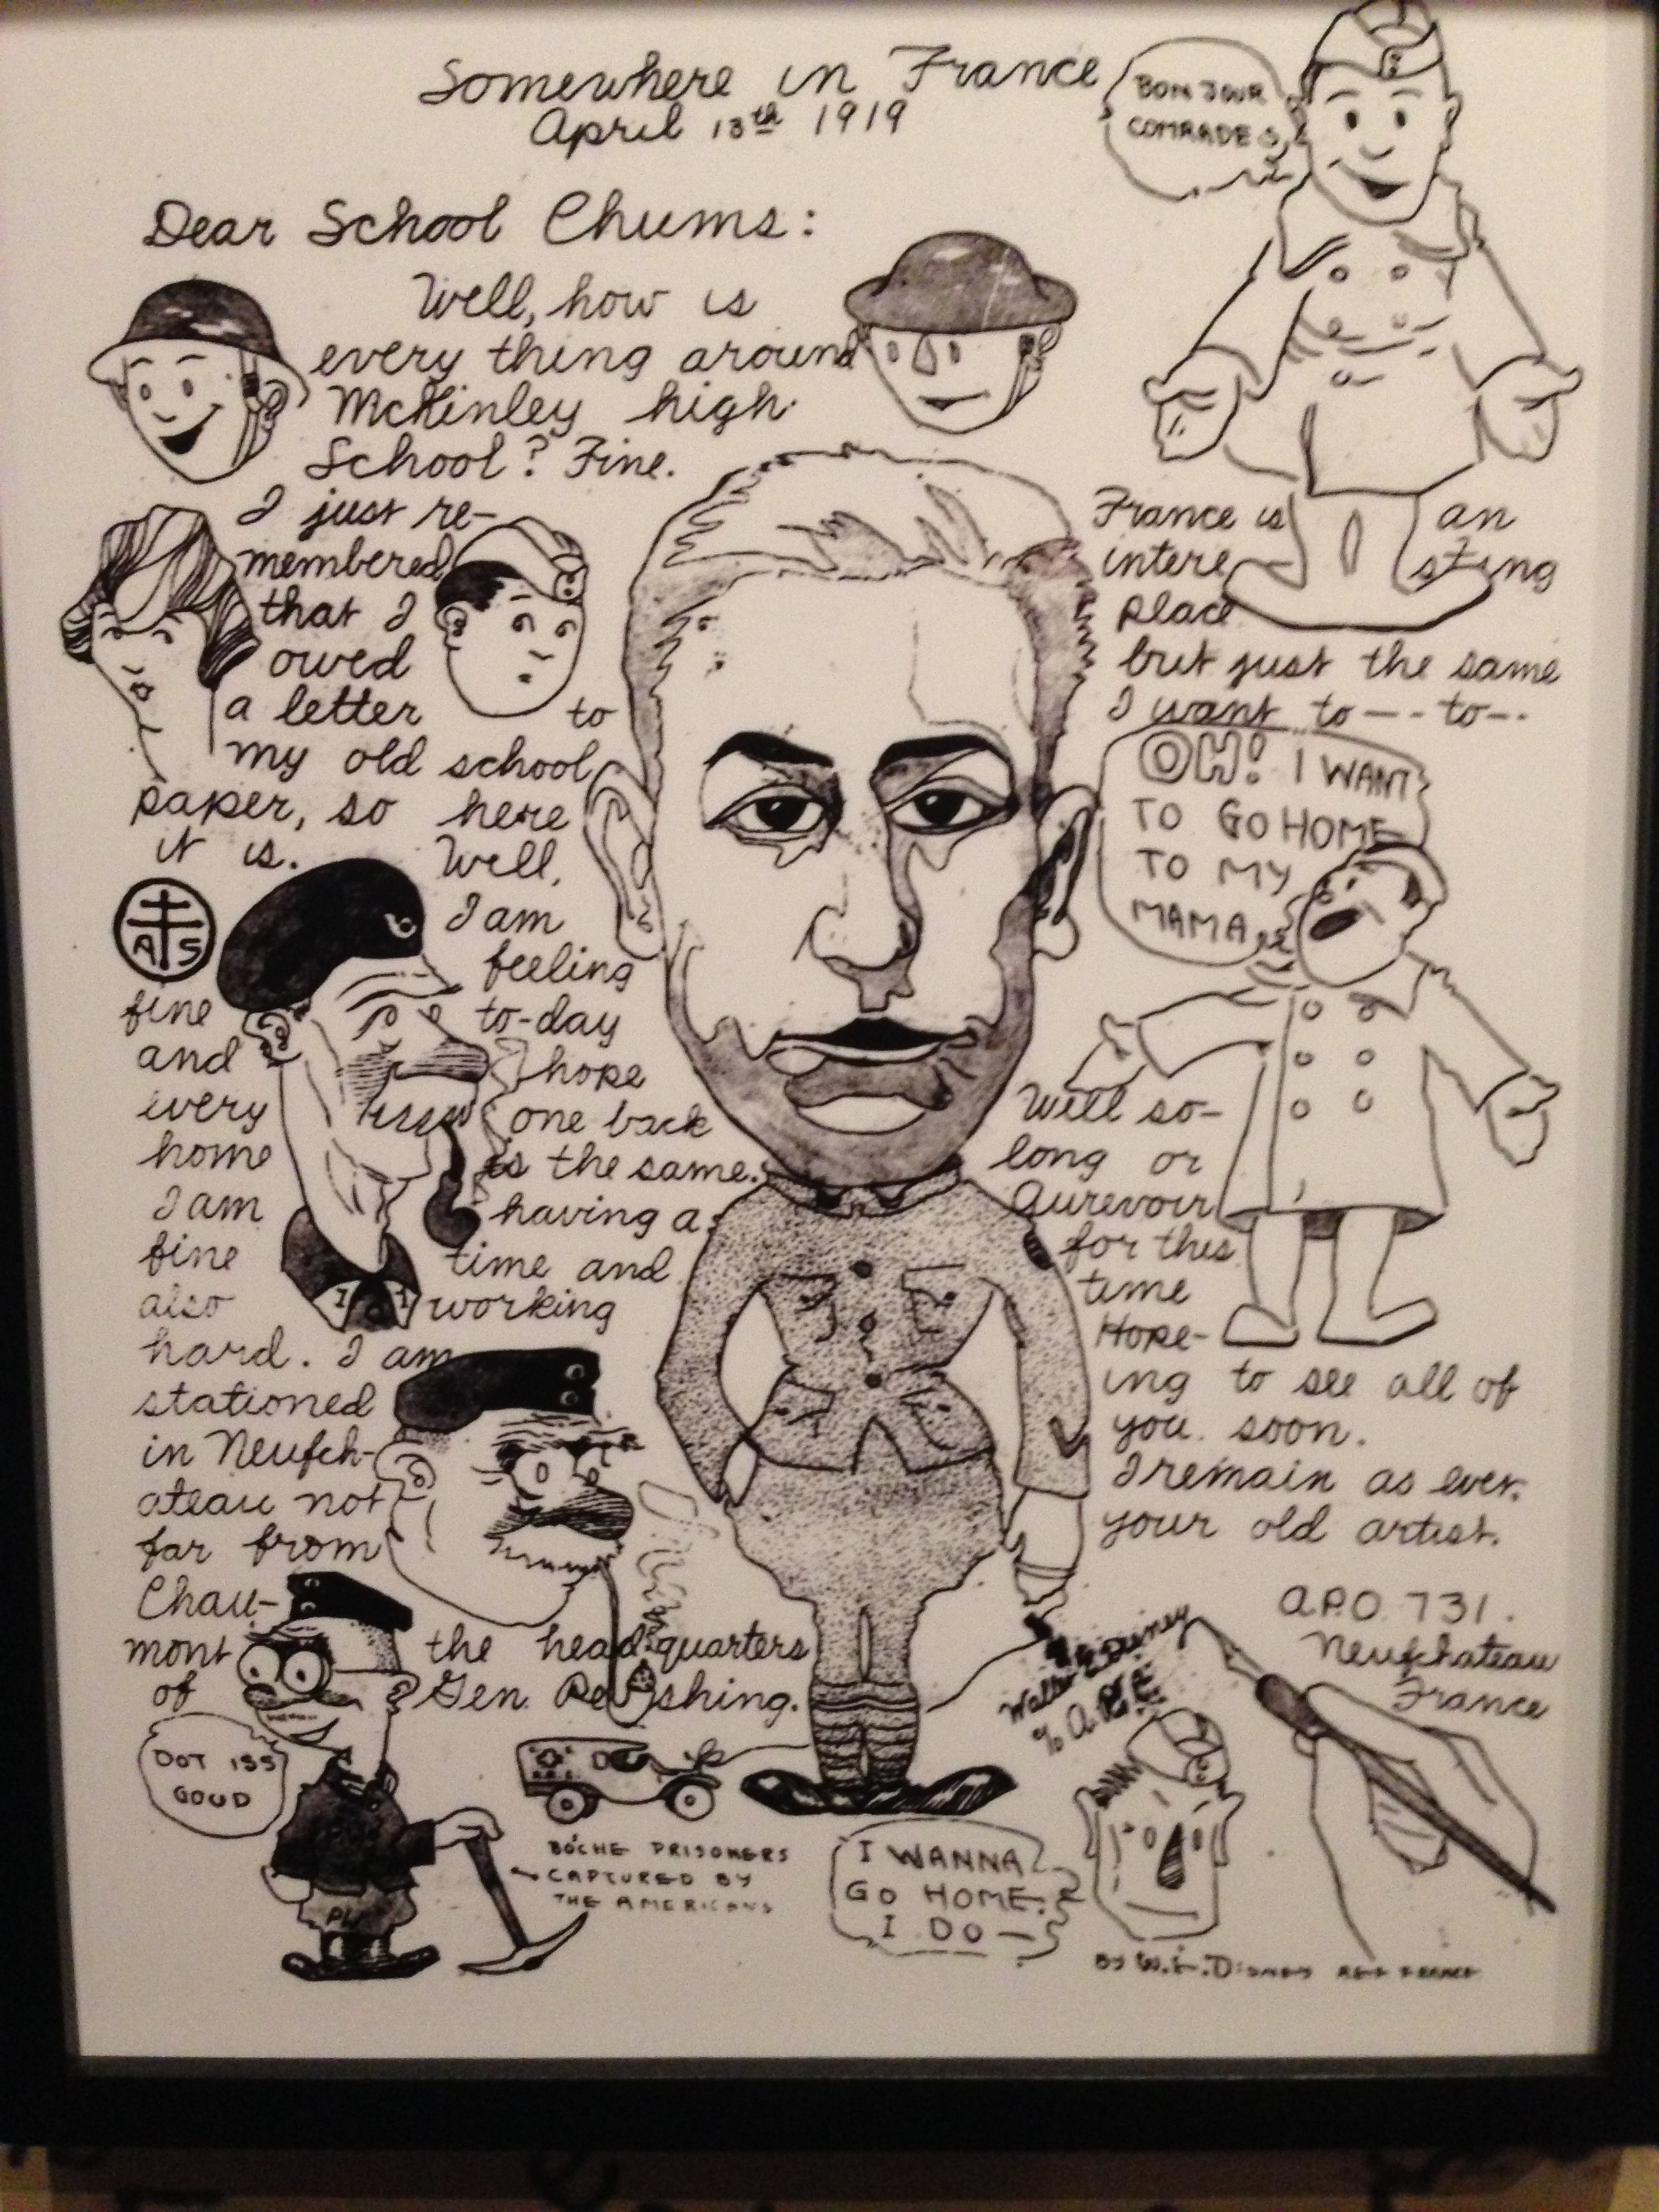 Somewhere in France
April 13th 1919
BONJOUR
COMRADES
Dear School Chums:
Well, how is
every thing around
McKinley high
School? Fine.
I just re-
membered
that I
owed
a letter to
my old school
paper, so here
it is. Well,
A S
I am
feeling
fine to-day
and hope
every one back
home is the same.
I am having a
fine time and
also working
1 1
hard. I am
stationed
in Neufch-
ateau not
far from
Chau-
mont the headquarters
of Gen. Pershing.
DOT ISS
GOUD
PW
BOCHE PRISONERS
CAPTURED BY
THE AMERICANS
France is an
interesting
place
but just the same
I want to --- to --
OH! I WANT
TO GO HOME
TO MY
MAMA
Well so-
long or
Aurevoir
for this
time
Hope-
ing to see all of
you soon.
I remain as ever,
your old artist.
Walter E Disney
A.P.O. 731.
Neufchateau
France
I WANNA
GO HOME.
I DO —
BY W.E. DISNEY FRANCE